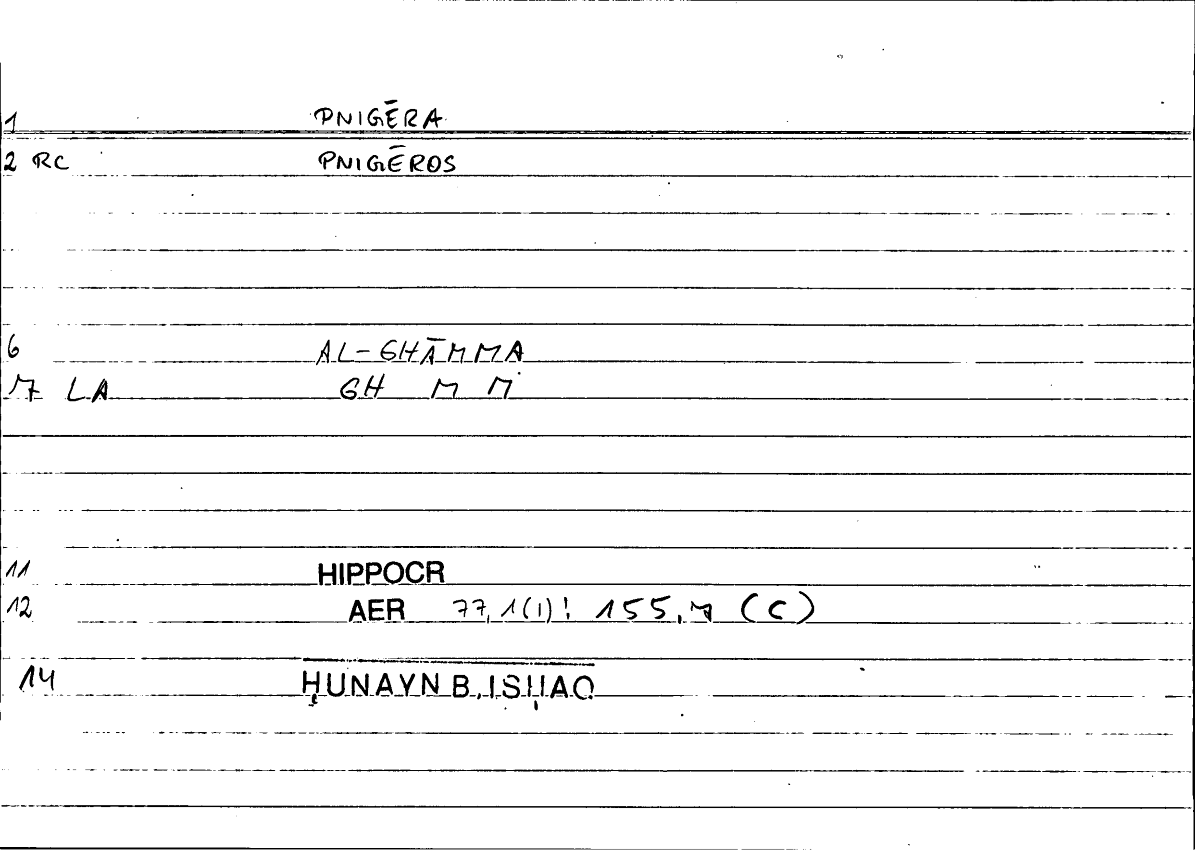 1 PNIGĒRA
2 RC PNIGĒROS
6 AL-GHĀMMA
7 LA GH M M
11 HIPPOCR
12 AER 77,1(1)! 155,7 (C)
14 ḤUNAYN B. ISḤAQ